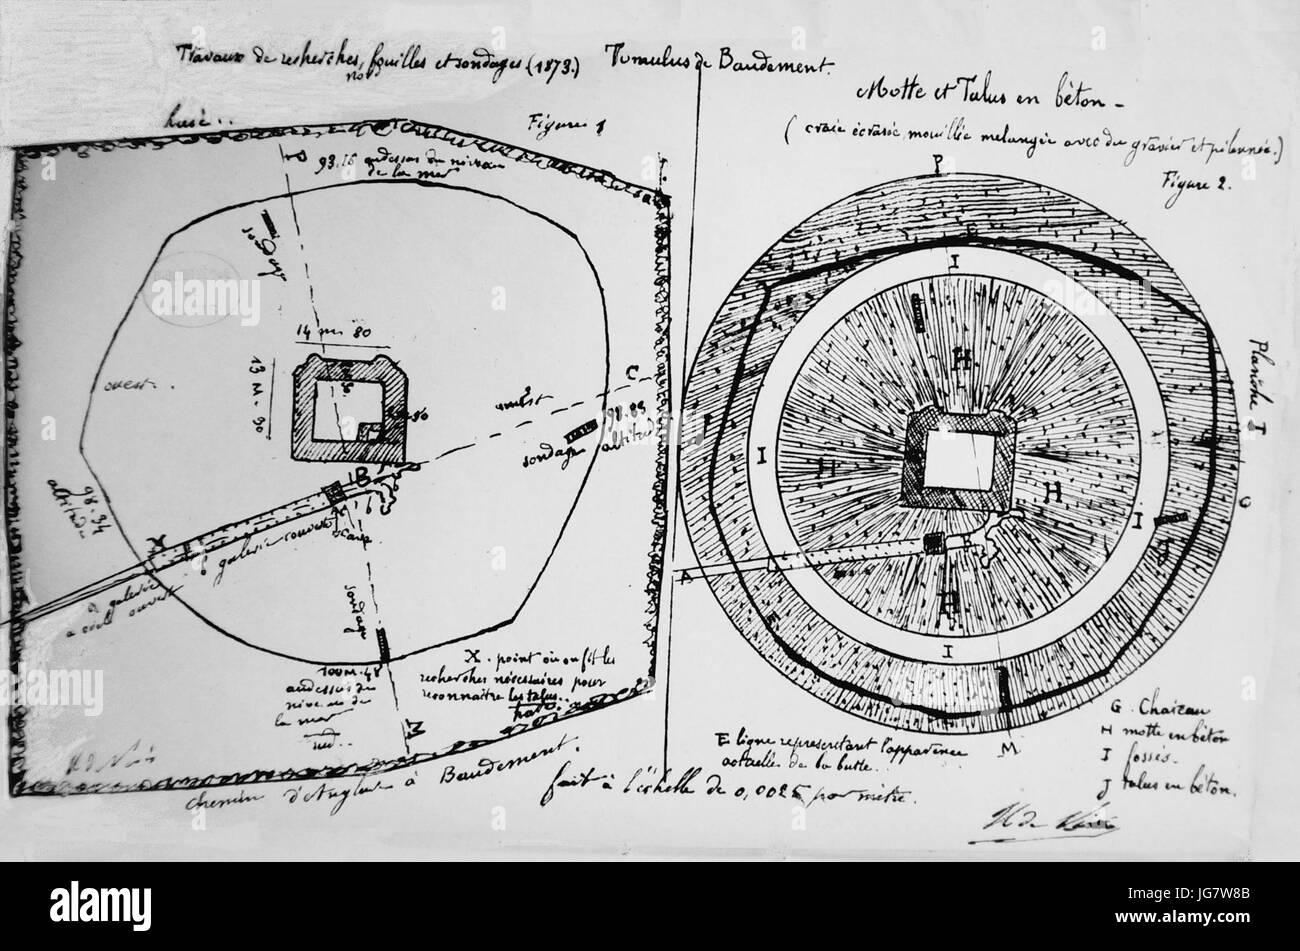 Travaux de recherches, fouilles et sondages (1873.) Tumulus de Baudement.
Motte et Talus en béton -
( craie écrasée mouillée melangée avec du gravier et pilonnée.)
Figure 1
Figure 2.
Planche I
P
93.15 audessus du niveau
de la mer
sondage
14 m. 80
13 M. 90
ouest.
C
98.83
altitude
sondage
98.34
altitude
X
B
galerie couverte
galerie
a ciel ouvert
sondage
100 M. 48
audessus du
niveau de
la mer
sud..
M
X. point où on fit les
recherches nécessaires pour
reconnaître les talus..
chemin d'Anglure à Baudement.
fait à l'échelle de 0,0025 par mètre.
P
E
I
H
H
H
H
I
I
I
A
M
E ligne représentant l'apparence
actuelle de la butte.
G. Chateau
H motte en béton
I fossés.
J talus en béton.
a
alamy
Image ID: JG7W8B
www.alamy.com